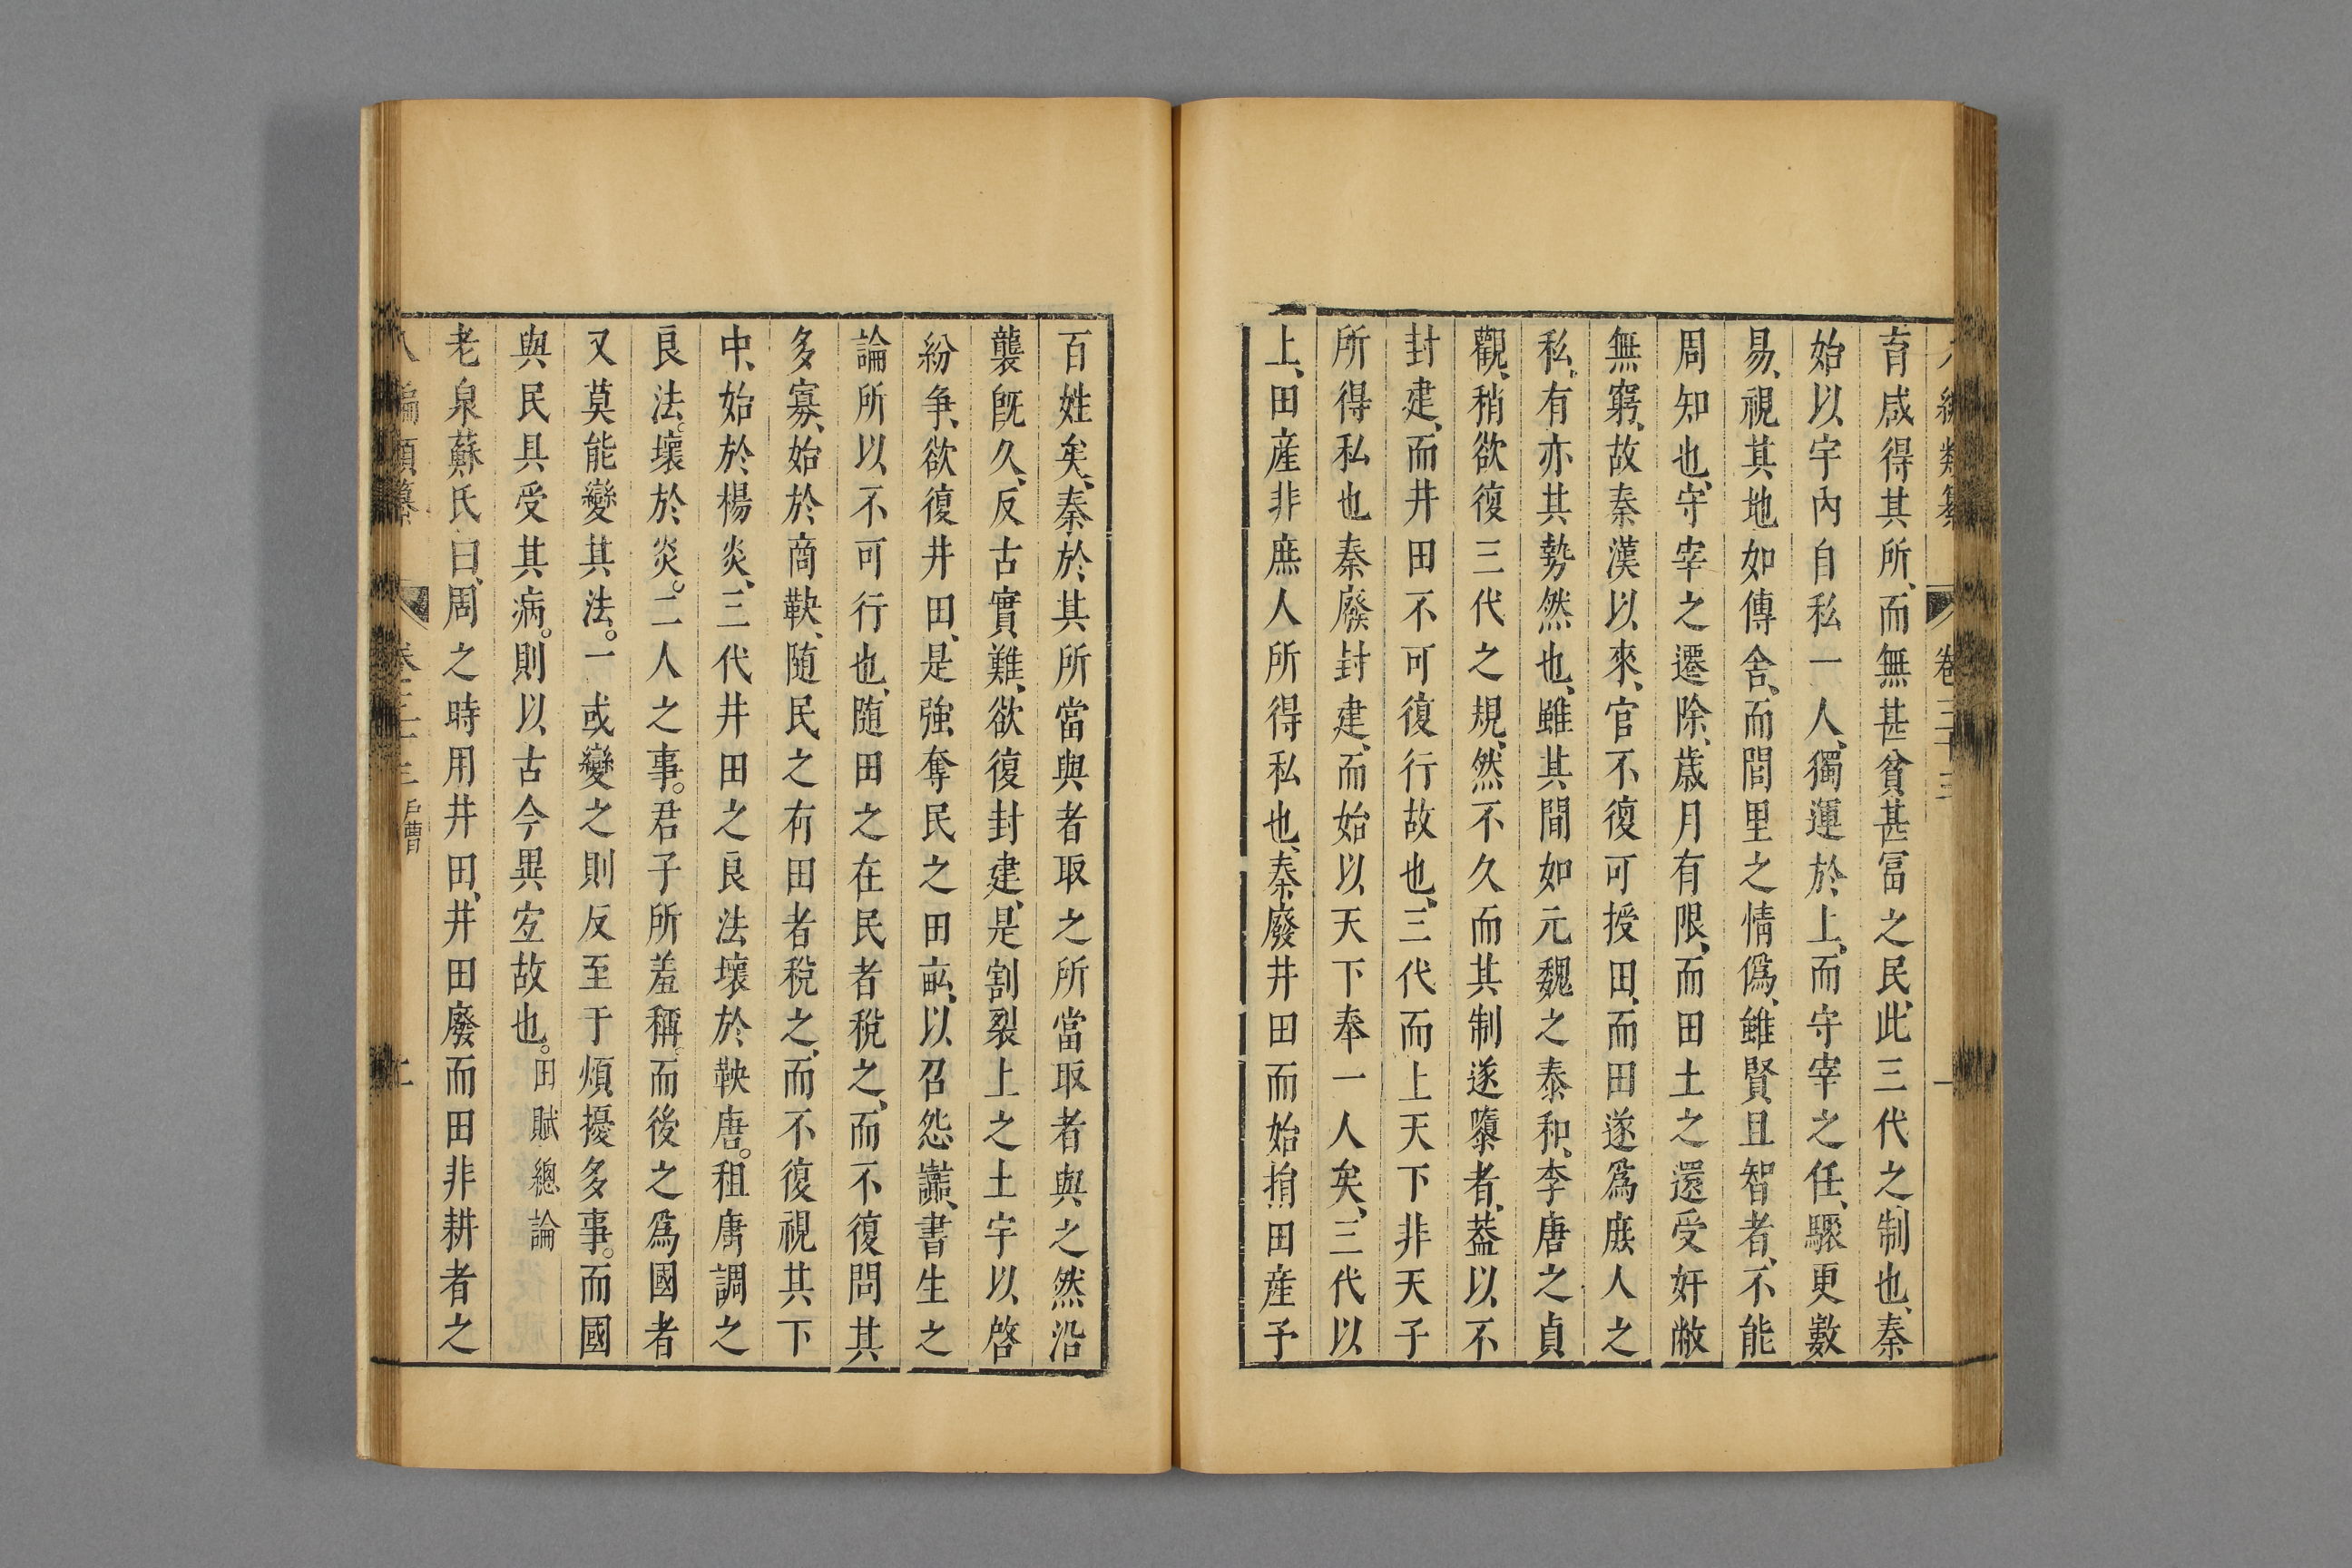 育咸得其所、而無甚貧甚冨之民、此三代之制也、秦
始以宇內自私一人、獨運於上、而守宰之任、驟更數
易、視其地如傳舍、而閭里之情僞、雖賢且智者、不能
周知也、守宰之遷除、歲月有限、而田土之還受奸敝
無窮、故秦漢以來、官不復可授田、而田遂爲庶人之
私、有亦其勢然也、雖其間如元魏之泰和、李唐之貞
觀、稍欲復三代之規、然不久而其制遂隳者、蓋以不
封建、而井田不可復行故也、三代而上天下非天子
所得私也秦廢封建、而始以天下奉一人矣、三代以
上、田產非庶人所得私也、秦廢井田而始捐田産予
百姓矣、秦於其所當與者取之所當取者與之然沿
襲既久、反古實難、欲復封建、是割裂上之土宇以啓
紛争、欲復井田、是強奪民之田畝、以召怨讟、書生之
論所以不可行也、随田之在民者稅之、而不復問其
多寡、始於商鞅、随民之有田者稅之、而不復視其下
中、始於楊炎、三代井田之良法壞於鞅唐。租庸調之
良法。壞於炎。二人之事。君子所羞稱。而後之爲國者
又莫能變其法。一或變之則反至于煩擾多事。而國
與民具受其病。則以古今異宜故也。田賦總論
老泉蘇氏曰、周之時用井田、井田廢而田非耕者之
卷三十三 戶曹